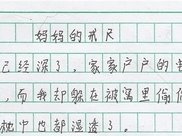 妈妈的戒尺
已经深了,家家户户的
,而我却躲在被窝里偷偷
袖中巴都湿透了。